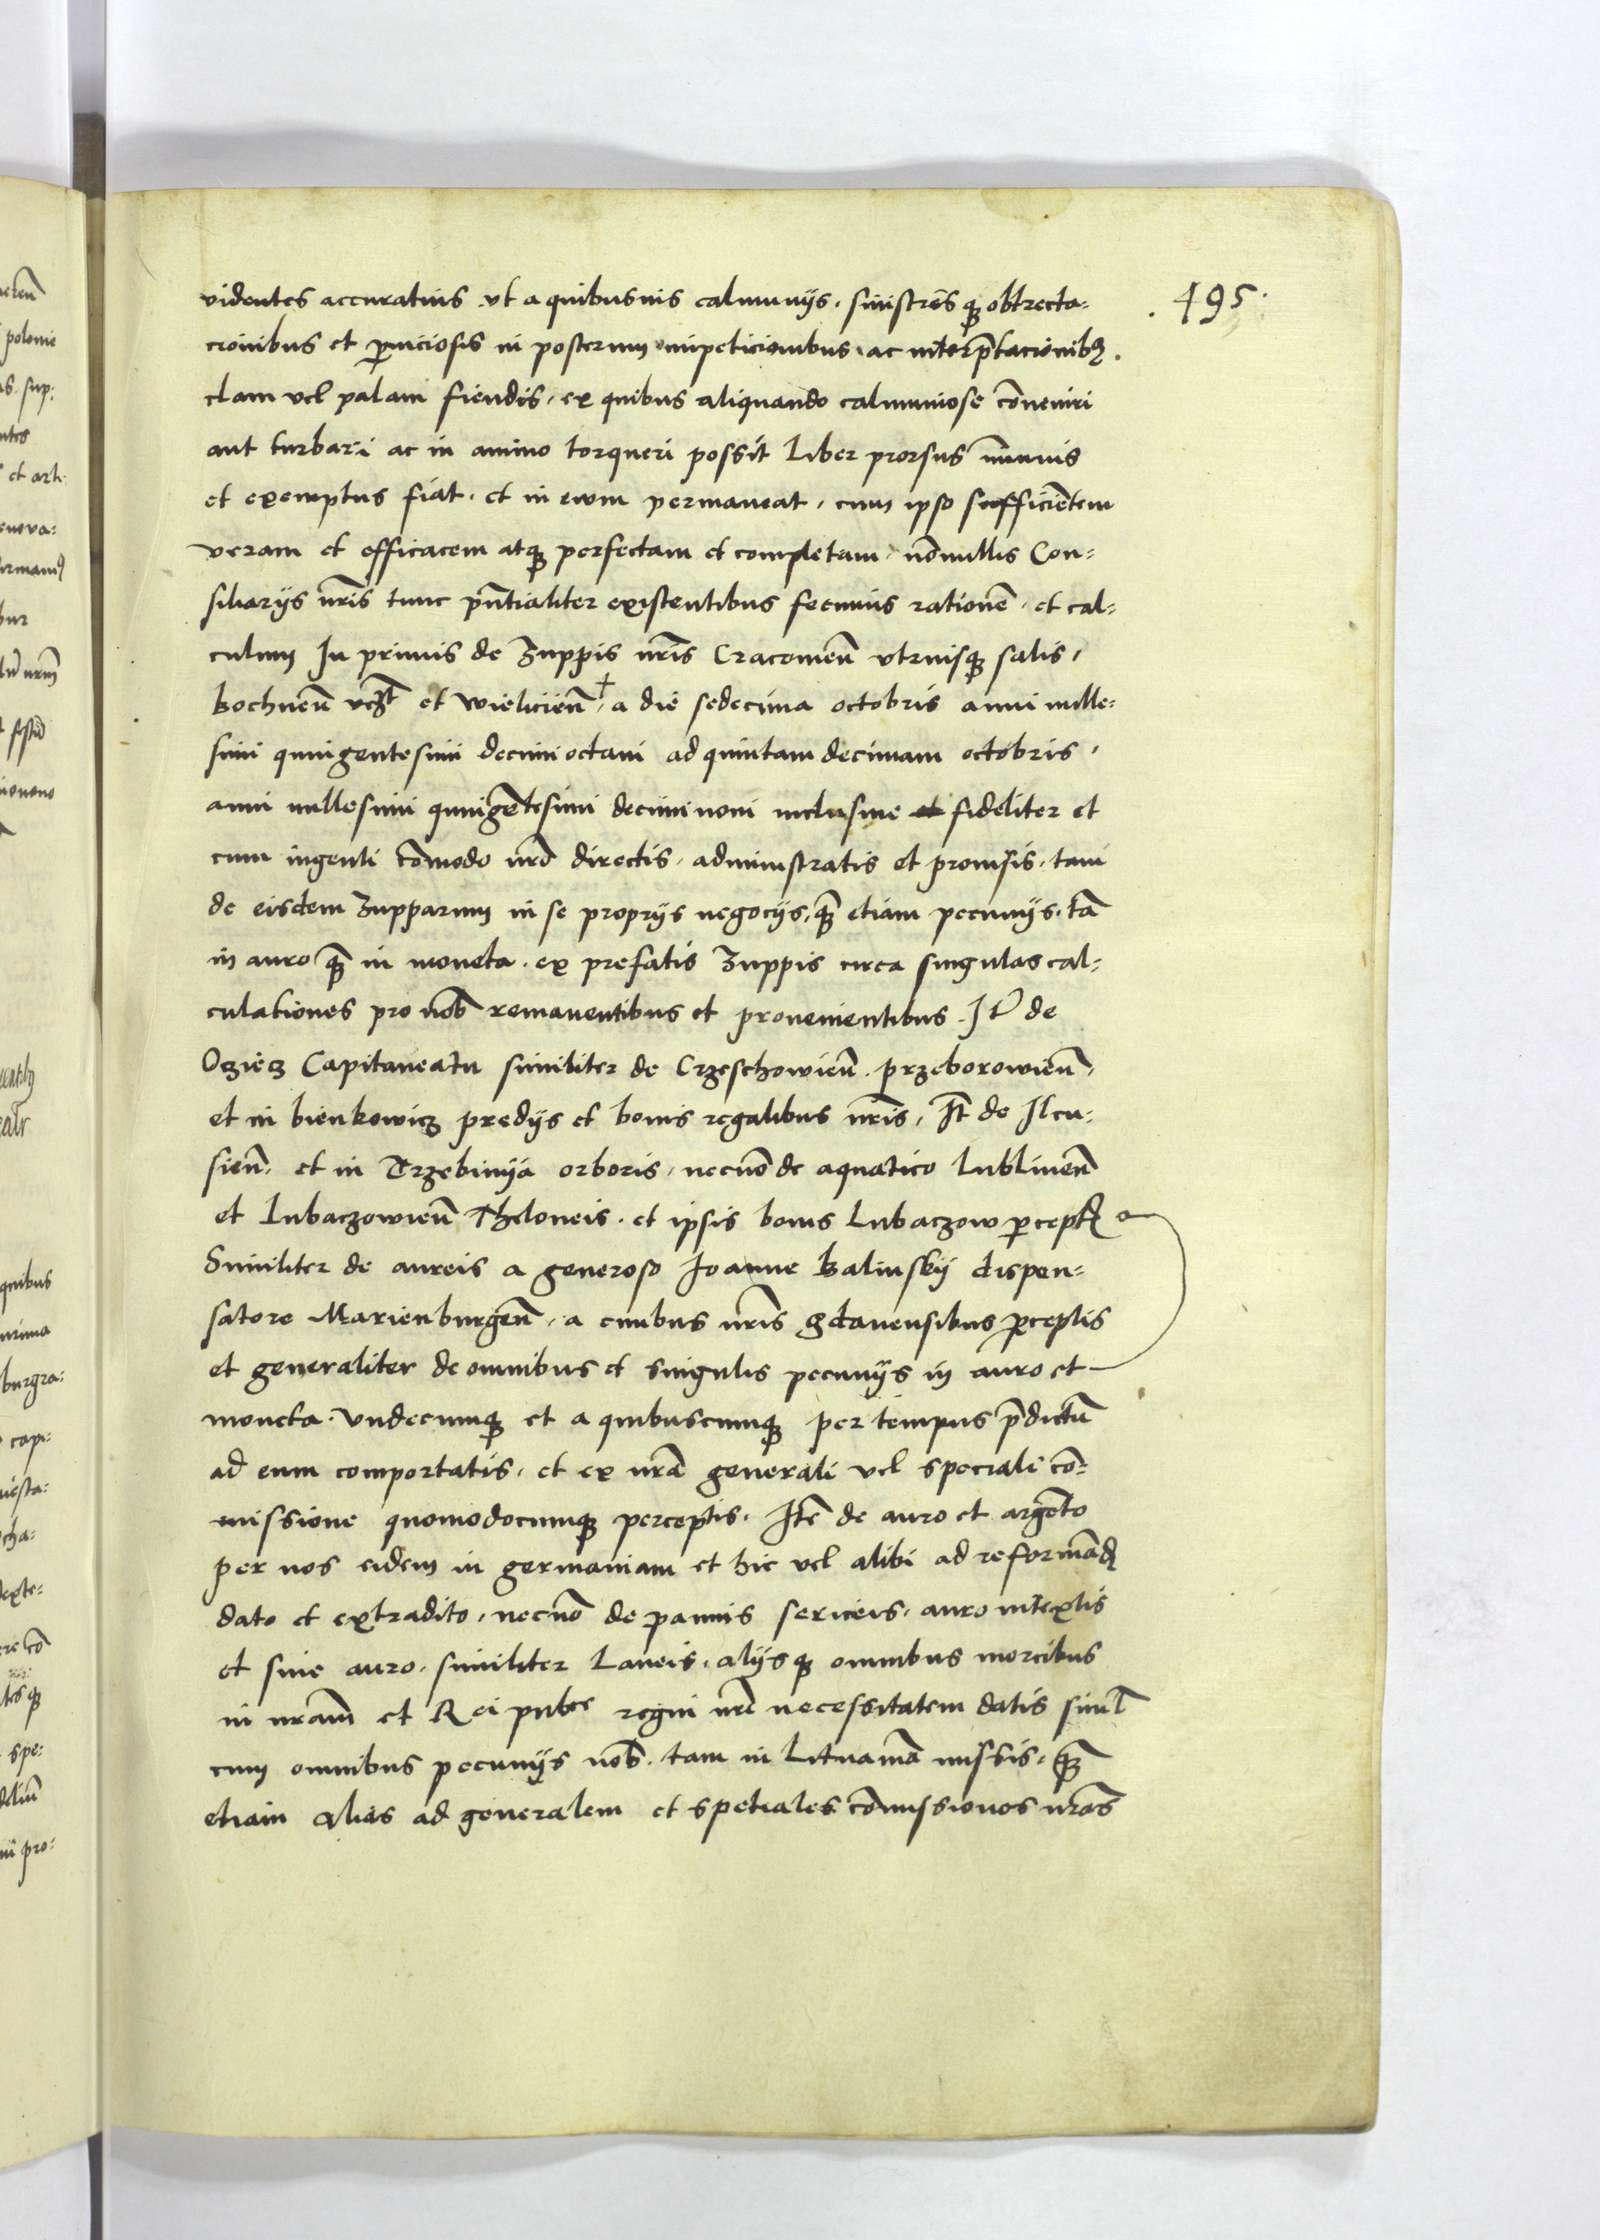 495
videntes accuratius vt a quibusuis calumnijs. sinistrisq₃ obtrecta=
cionibus et ꝑniciosis in posterum impeticionibus. ac interp̄tacionibꝫ.
clam vel palam fiendis. ex quibus aliquando calumniose cōueniri
aut turbari ac in animo torqueri possit Liber prorsus īmunis
et exemptus fiat. et in ewm permaneat. cum ipso sufficiētem
veram et efficacem atq₃ perfectam et completam. nōnullis Con=
siliarijs nr̄is tunc pn̄tialiter existentibus fecimus rationē. et cal=
culum In primis de Zuppis nr̄is Cracouien̄ vtriusq₃ salis,
Bochnen̄ vꝫt et wielicien̄, a die sedecima octobris anni mille=
simi quingentesimi decimi octaui ad quintam decimam octobris,
anni millesimi quingētesimi decimi noni inclusiue fideliter et
cum ingenti cōmodo nr̄o directis. administratis et prouisis. tam
de eisdem Zupparum in se proprijs negocijs, q₃ etiam pecunijs. tā
in auro q₃ in moneta. ex prefatis Zuppis circa singulas cal=
culationes pro nob̄ remanentibus et prouenientibus. It̄ de
Osziecz Capitaneatu similiter de Crzeschowien̄. przeborowien̄,
et in bienkowicz predijs et bonis regalibus nr̄is, It̄ de Ilcu=
sien̄. et in Trzebinija orboris, necnō de aquatico Lublinen̄
et Lubaczowien̄ Theloneis. et ipsis bonis Lubaczow ꝑcept
Similiter de aureis a generoso Joanne Balinskij dispen=
satore Marienburgen̄. a ciuibus nr̄is gdanensibus ꝑceptis
et generaliter de omnibus et singulis pecunijs in auro et
moneta. vndecumq₃ et a quibuscumq₃ per tempus p̄dictū
ad eum comportatis. et ex nr̄a generali vel speciali cō=
missione quomodocumq₃ perceptis. Itē de auro et argēto
per nos eidem in germaniam et hic vel alibi ad reformād
dato et extradito, necnō de pannis sericeis. auro intextis
et sine auro. similiter Laneis. alijsq₃ omnibus mercibus
in nr̄am et Rei pubce regni nr̄i necessitatem datis simul
cum omnibus pecunijs nob̄. tam in Lituaniā missis. q₃
etiam alias ad generalem et spetiales cōmissiones nr̄as